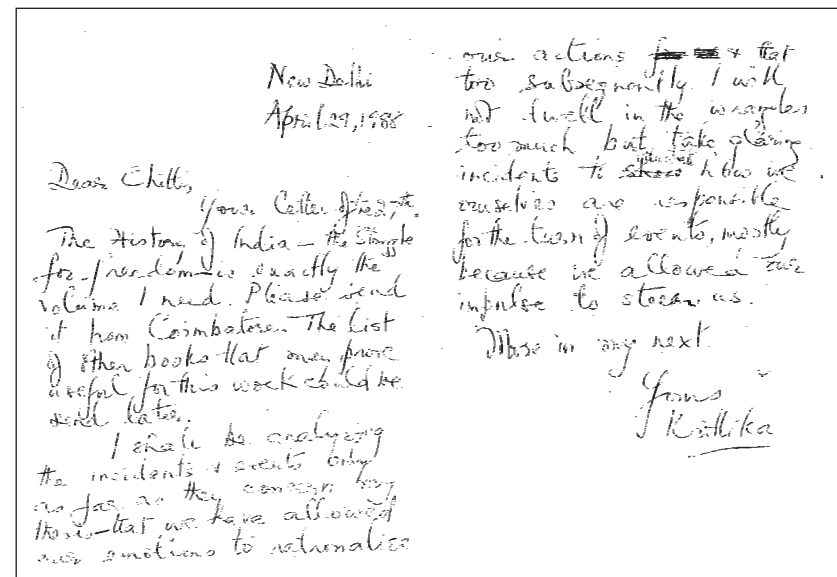 New Delhi
April 29, 1988
Dear Chitti,
Your letter of the 27th.
The History of India – the Struggle
for freedom – is exactly the
volume I need. Please send
it from Coimbatore. The list
of other books that may prove
useful for this work could be
send later.
I shall be analyzing
the incidents & events only
as far as they concern my
thesis – that we have allowed
our emotions to rationalise
our actions & that
too subsequently. I will
not dwell in the
too much but take glaring
incidents to how we
ourselves are responsible
for the turn of events, mostly
because we allowed our
impulse to steer us.
More in my next.
Yours
Krithika